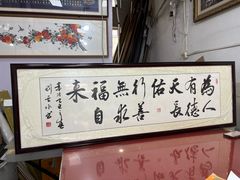 為人
有德
天長
佑
行善
無求
福自
来